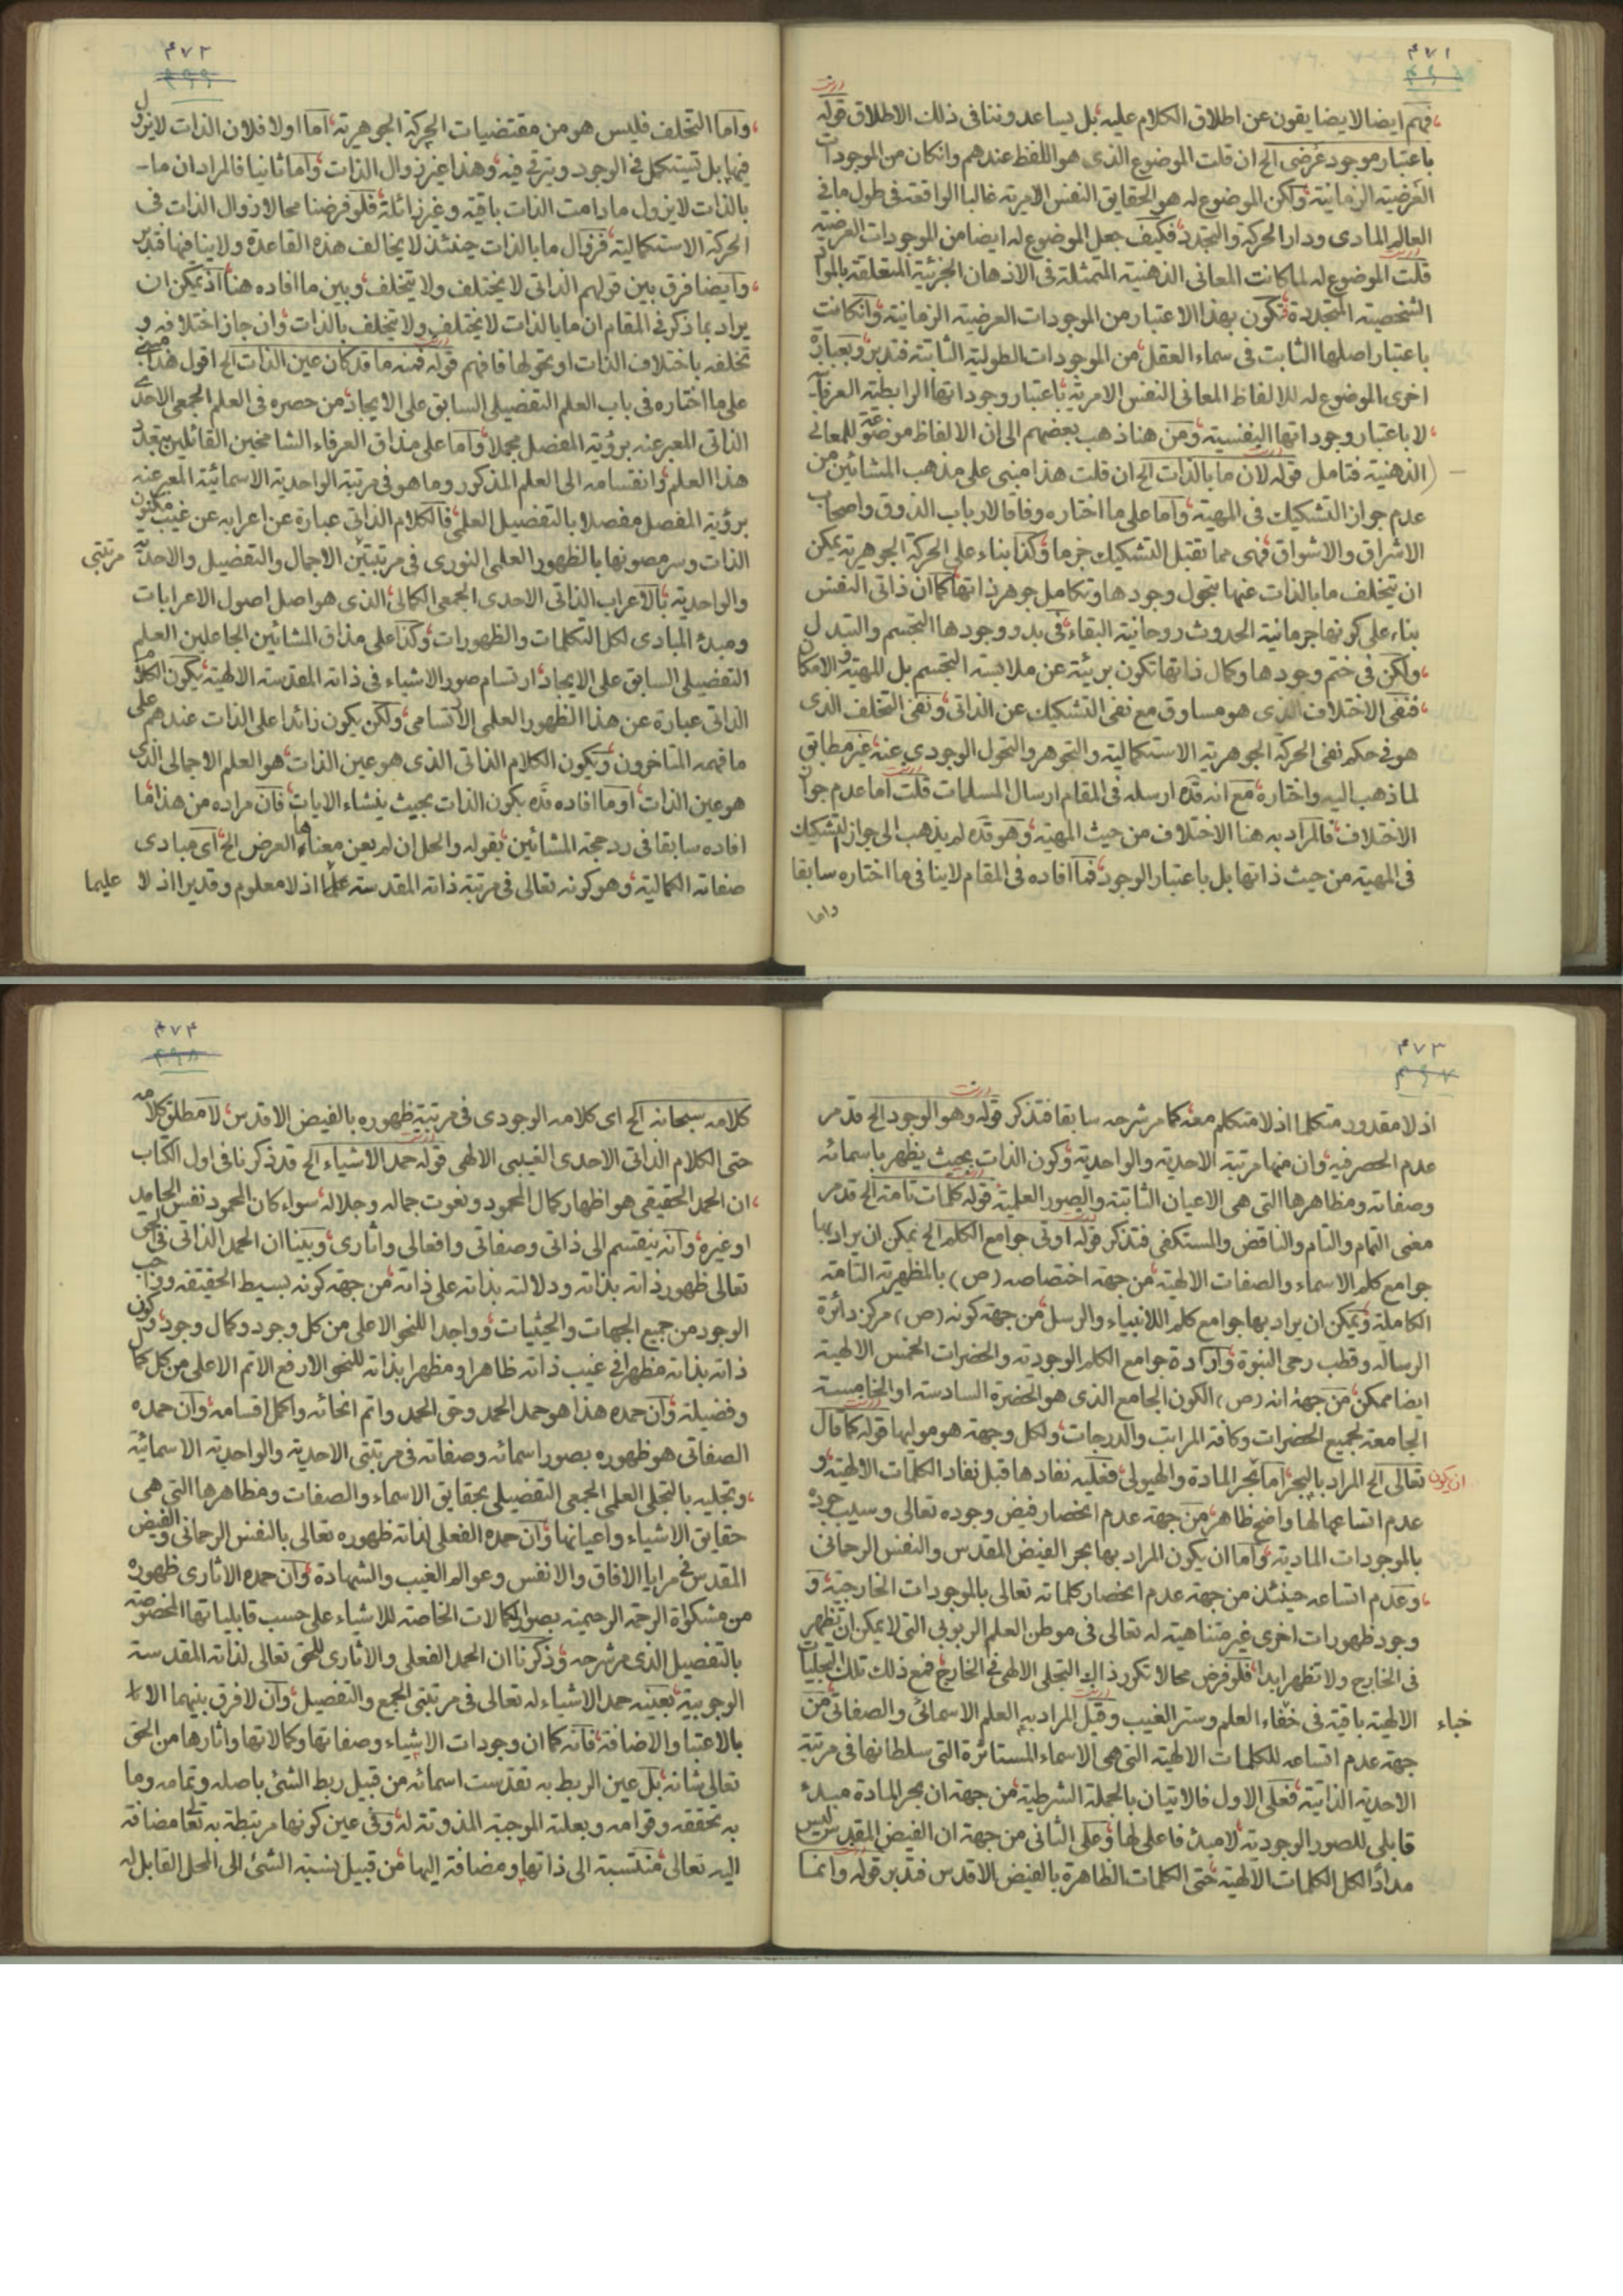 ۴۷۱
فهم ايضا لا يضايقون عن اطلاق الكلام عليه بل يساعدوننا فى ذلك الاطلاق قوله
باعتبار موجود عرضى الخ ان قلت الموضوع الذى هو اللفظ عندهم وانكان من الموجودات
العرضية الزمانية ولكن الموضوع له هو الحقايق النفس الامرية غالبا الواقعة فى طول ما فى
العالم المادى ودار الحركة والتجدد فكيف جعل الموضوع له ايضا من الموجودات العرضية
قلت الموضوع له لما كانت المعانى الذهنية المتمثلة فى الاذهان الجزئية المتعلقة بالمواد
الشخصية المتجددة فتكون بهذا الاعتبار من الموجودات العرضية الزمانية وانكانت
باعتبار اصلها الثابت فى سماء العقل من الموجودات الطولية الثابتة فتدبر وبعبارة
اخرى الموضوع له للالفاظ المعانى النفس الامرية باعتبار وجوداتها الرابطية
لا باعتبار وجوداتها النفسية ومن هنا ذهب بعضهم الى ان الالفاظ موضوعة للمعانى
الذهنية فتامل قوله لان ما بالذات الخ ان قلت هذا مبنى على مذهب المشائين من
عدم جواز التشكيك فى المهية واما على ما اختاره وفاقا لارباب الذوق واصحاب
الاشراق والاشواق فهى مما تقبل التشكيك جزما وكذا بناء على الحركة الجوهرية يمكن
ان يتخلف ما بالذات عنها بتحول وجودها وتكامل جوهر ذاتها كما ان ذاتى النفس
بناء على كونها جرمانية الحدوث روحانية البقاء فى بدو وجودها التجسم والتبدل
ولكن فى ختم وجودها وكمال ذاتها تكون بريئة عن ملابسة التجسم بل المهية والامكان
فنفى الاختلاف الذى هو مساوق مع نفى التشكيك عن الذاتى ونفى التخلف الذى
هو فى حكم نفى الحركة الجوهرية الاستكمالية والتجوهر والتحول الوجودى عنه غير مطابق
لما ذهب اليه واختاره مع انه قده ارسله فى المقام ارسال المسلمات قلت اما عدم جواز
الاختلاف فالمراد به هنا الاختلاف من حيث المهية وهو قده لم يذهب الى جواز التشكيك
فى المهية من حيث ذاتها بل باعتبار الوجود فما افاده فى المقام لا ينافى ما اختاره سابقا
واما
۴۷۲
واما التخلف فليس هو من مقتضيات الحركة الجوهرية اما اولا فلان الذات لا يزول
فيها بل تستكمل فى الوجود ويترقى فيه وهذا غير زوال الذات واما ثانيا فالمراد ان ما
بالذات لا يزول ما دامت الذات باقية وغير زائلة فلو فرضنا محالا زوال الذات فى
الحركة الاستكمالية فزوال ما بالذات حينئذ لا يخالف هذه القاعدة ولا ينافيها فتدبر
وايضا فرق بين قولهم الذاتى لا يختلف ولا يتخلف وبين ما افاده هنا اذ يمكن ان
يراد بما ذكر فى المقام ان ما بالذات لا يختلف ولا يتخلف بالذات وان جاز اختلافه و
تخلفه باختلاف الذات او تحولها فافهم قوله فمنه ما قد كان عين الذات الخ اقول هذا مبنى
على ما اختاره فى باب العلم التفصيلى السابق على الايجاد من حصره فى العلم الجمعى الاحدى
الذاتى المعبر عنه برؤية المفصل مجملا واما على مذاق العرفاء الشامخين القائلين بتعدد
هذا العلم وانقسامه الى العلم المذكور وما هو فى مرتبة الواحدية الاسمائية المعبر عنه
برؤية المفصل مفصلا بالتفصيل العلمى فالكلام الذاتى عبارة عن اعرابه عن غيب مكنون
الذات وسر مصونها بالظهور العلمى النورى فى مرتبتين الاجمال والتفصيل والاحدية مرتبتى
والواحدية بالاعراب الذاتى الاحدى الجمعى الكمالى الذى هو اصل اصول الاعرابات
ومبدء المبادى لكل التكلمات والظهورات وكذا على مذاق المشائين الجاعلين العلم
التفصيلى السابق على الايجاد ارتسام صور الاشياء فى ذاته المقدسة الالهية يكون الكلام
الذاتى عبارة عن هذا الظهور العلمى الارتسامى ولكن يكون زائدا على الذات عندهم على
ما فهمه المتاخرون ويكون الكلام الذاتى الذى هو عين الذات هو العلم الاجمالى الذى
هو عين الذات او ما افاده قده بكون الذات بحيث ينشاء الايات فان مراده من هذا ما
افاده سابقا فى رد حجة المشائين بقوله والحل ان لم يعن معناها العرض الخ اى مبادى
صفاته الكمالية وهو كونه تعالى فى مرتبة ذاته المقدسة اذ لا معلوم وقديرا اذ لا عليما
۴۷۳
اذ لا مقدور متكلما اذ لا متكلم معه كما مر شرحه سابقا فتذكر قوله وهو الوجود الخ قد مر
عدم الحصر فيه وان منها مرتبة الاحدية والواحدية وكون الذات بحيث يظهر باسمائه
وصفاته ومظاهرها التى هى الاعيان الثابتة والصور العلمية قوله كلمات تامة الخ قد مر
معنى التمام والتام والناقص والمستكفى فتذكر قوله اوتى جوامع الكلم الخ يمكن ان يراد بها
جوامع كلم الاسماء والصفات الالهية من جهة اختصاصه (ص) بالمظهرية التامة
الكاملة ويمكن ان يراد بها جوامع كلم الانبياء والرسل من جهة كونه (ص) مركز دائرة
الرسالة وقطب رحى النبوة وارادة جوامع الكلم الوجودية والحضرات الخمس الالهية
ايضا ممكن من جهة انه (ص) الكون الجامع الذى هو الحضرة السادسة او الخامسة
الجامعة لجميع الحضرات وكافة المراتب والدرجات ولكل وجهة هو موليها قوله كما قال
تعالى الخ المراد بالبحر اما بحر المادة والهيولى فعليه نفادها قبل نفاد الكلمات الالهية و ان يكون
عدم اتساعها لها واضح ظاهر من جهة عدم انحصار فيض وجوده تعالى وسيب جوده
بالموجودات المادية واما ان يكون المراد بها بحر الفيض المقدس والنفس الرحمانى
وعدم اتساعه حينئذ من جهة عدم انحصار كلماته تعالى بالموجودات الخارجية و
وجود ظهورات اخرى غير متناهية له تعالى فى موطن العلم الربوبى التى لا يمكن ان تظهر
فى الخارج ولا تظهر ابدا فلو فرض محالا تكرر ذاك التجلى الالهى فى الخارج فمع ذلك تلك التجليات
الالهية باقية فى خفاء العلم وستر الغيب وقيل المراد به العلم الاسمائى والصفاتى من خباء
جهة عدم اتساعه للكلمات الالهية التى هى الاسماء المستاثرة التى سلطانها فى مرتبة
الاحدية الذاتية فعلى الاول فالاتيان بالجملة الشرطية من جهة ان بحر المادة مبدء
قابلى للصور الوجودية لا مبدء فاعلى لها وعلى الثانى من جهة ان الفيض المقدس ليس
مدادا لكل الكلمات الالهية حتى الكلمات الظاهرة بالفيض الاقدس فتدبر قوله وانما
۴۷۴
كلامه سبحانه الخ اى كلامه الوجودى فى مرتبة ظهوره بالفيض الاقدس لا مطلق كلامه
حتى الكلام الذاتى الاحدى الغيبى الالهى قوله حمد الاشياء الخ قد ذكرنا فى اول الكتاب
ان الحمد الحقيقى هو اظهار كمال المحمود ونعوت جماله وجلاله سواء كان المحمود نفس الحامد
او غيره وانه ينقسم الى ذاتى وصفاتى وافعالى واثارى وبينا ان الحمد الذاتى فى الحق
تعالى ظهور ذاته بذاته ودلالته بذاته على ذاته من جهة كونه بسيط الحقيقة وواجب
الوجود من جميع الجهات والحيثيات وواجدا للنحو الاعلى من كل وجود وكمال وجود وكون
ذاته بذاته مظهرا فى غيب ذاته ظاهرا ومظهرا بذاته للنحو الارفع الاتم الاعلى من كل كمال
وفضيلة وان حمده هذا هو حمد الحمد وحق الحمد واتم انحائه واكمل اقسامه وان حمده
الصفاتى هو ظهوره بصور اسمائه وصفاته فى مرتبتى الاحدية والواحدية الاسمائية
وتجليه بالتجلى العلمى الجمعى التفصيلى بحقايق الاسماء والصفات ومظاهرها التى هى
حقايق الاشياء واعيانها وان حمده الفعلى لذاته ظهوره تعالى بالنفس الرحمانى والفيض
المقدس فى مرايا الافاق والانفس وعوالم الغيب والشهادة وان حمده الاثارى ظهوره
من مشكوة الرحمة الرحيمية بصور الكمالات الخاصة للاشياء على حسب قابلياتها المخصوصة
بالتفصيل الذى مر شرحه وذكرنا ان الحمد الفعلى والاثارى للحق تعالى لذاته المقدسة
الوجوبية بعينه حمد الاشياء له تعالى فى مرتبتى الجمع والتفصيل وان لا فرق بينهما الا
بالاعتبار والاضافة فانه كما ان وجودات الاشياء وصفاتها وكمالاتها واثارها من الحق
تعالى شانه بل عين الربط به تقدست اسمائه من قبيل ربط الشئ باصله وتمامه وما
به تحققه وقوامه وبعلته الموجبة المذوتة له وفى عين كونها مرتبطة به تعالى مضافة
اليه تعالى منتسبة الى ذاتها ومضافة اليها من قبيل نسبة الشئ الى المحل القابل له